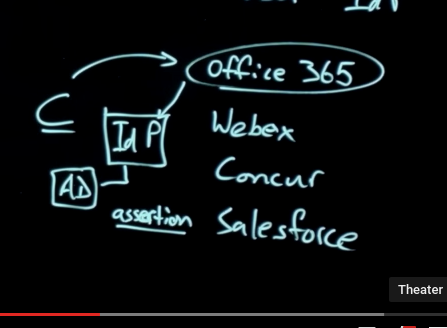 IdP
Office 365
C
IdP
Webex
AD
Concur
assertion
Salesforce
Theater